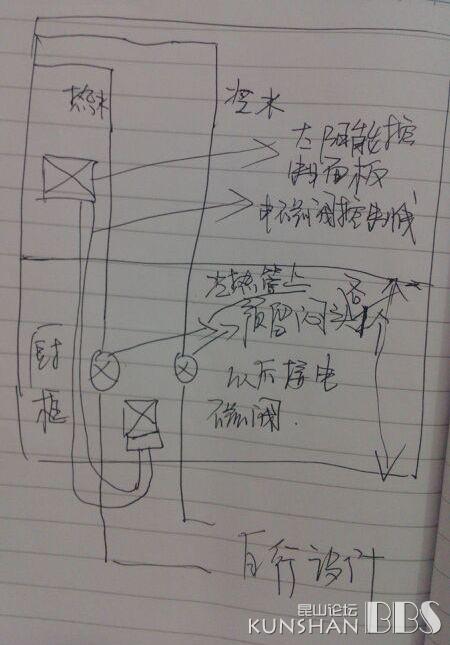 热水
空水
太阳能控
制面板
电磁阀控制线
冷热管上
预留阀门接
以后接电
磁阀.
厨
柜
自行设计
昆山论坛
KUNSHAN BBS